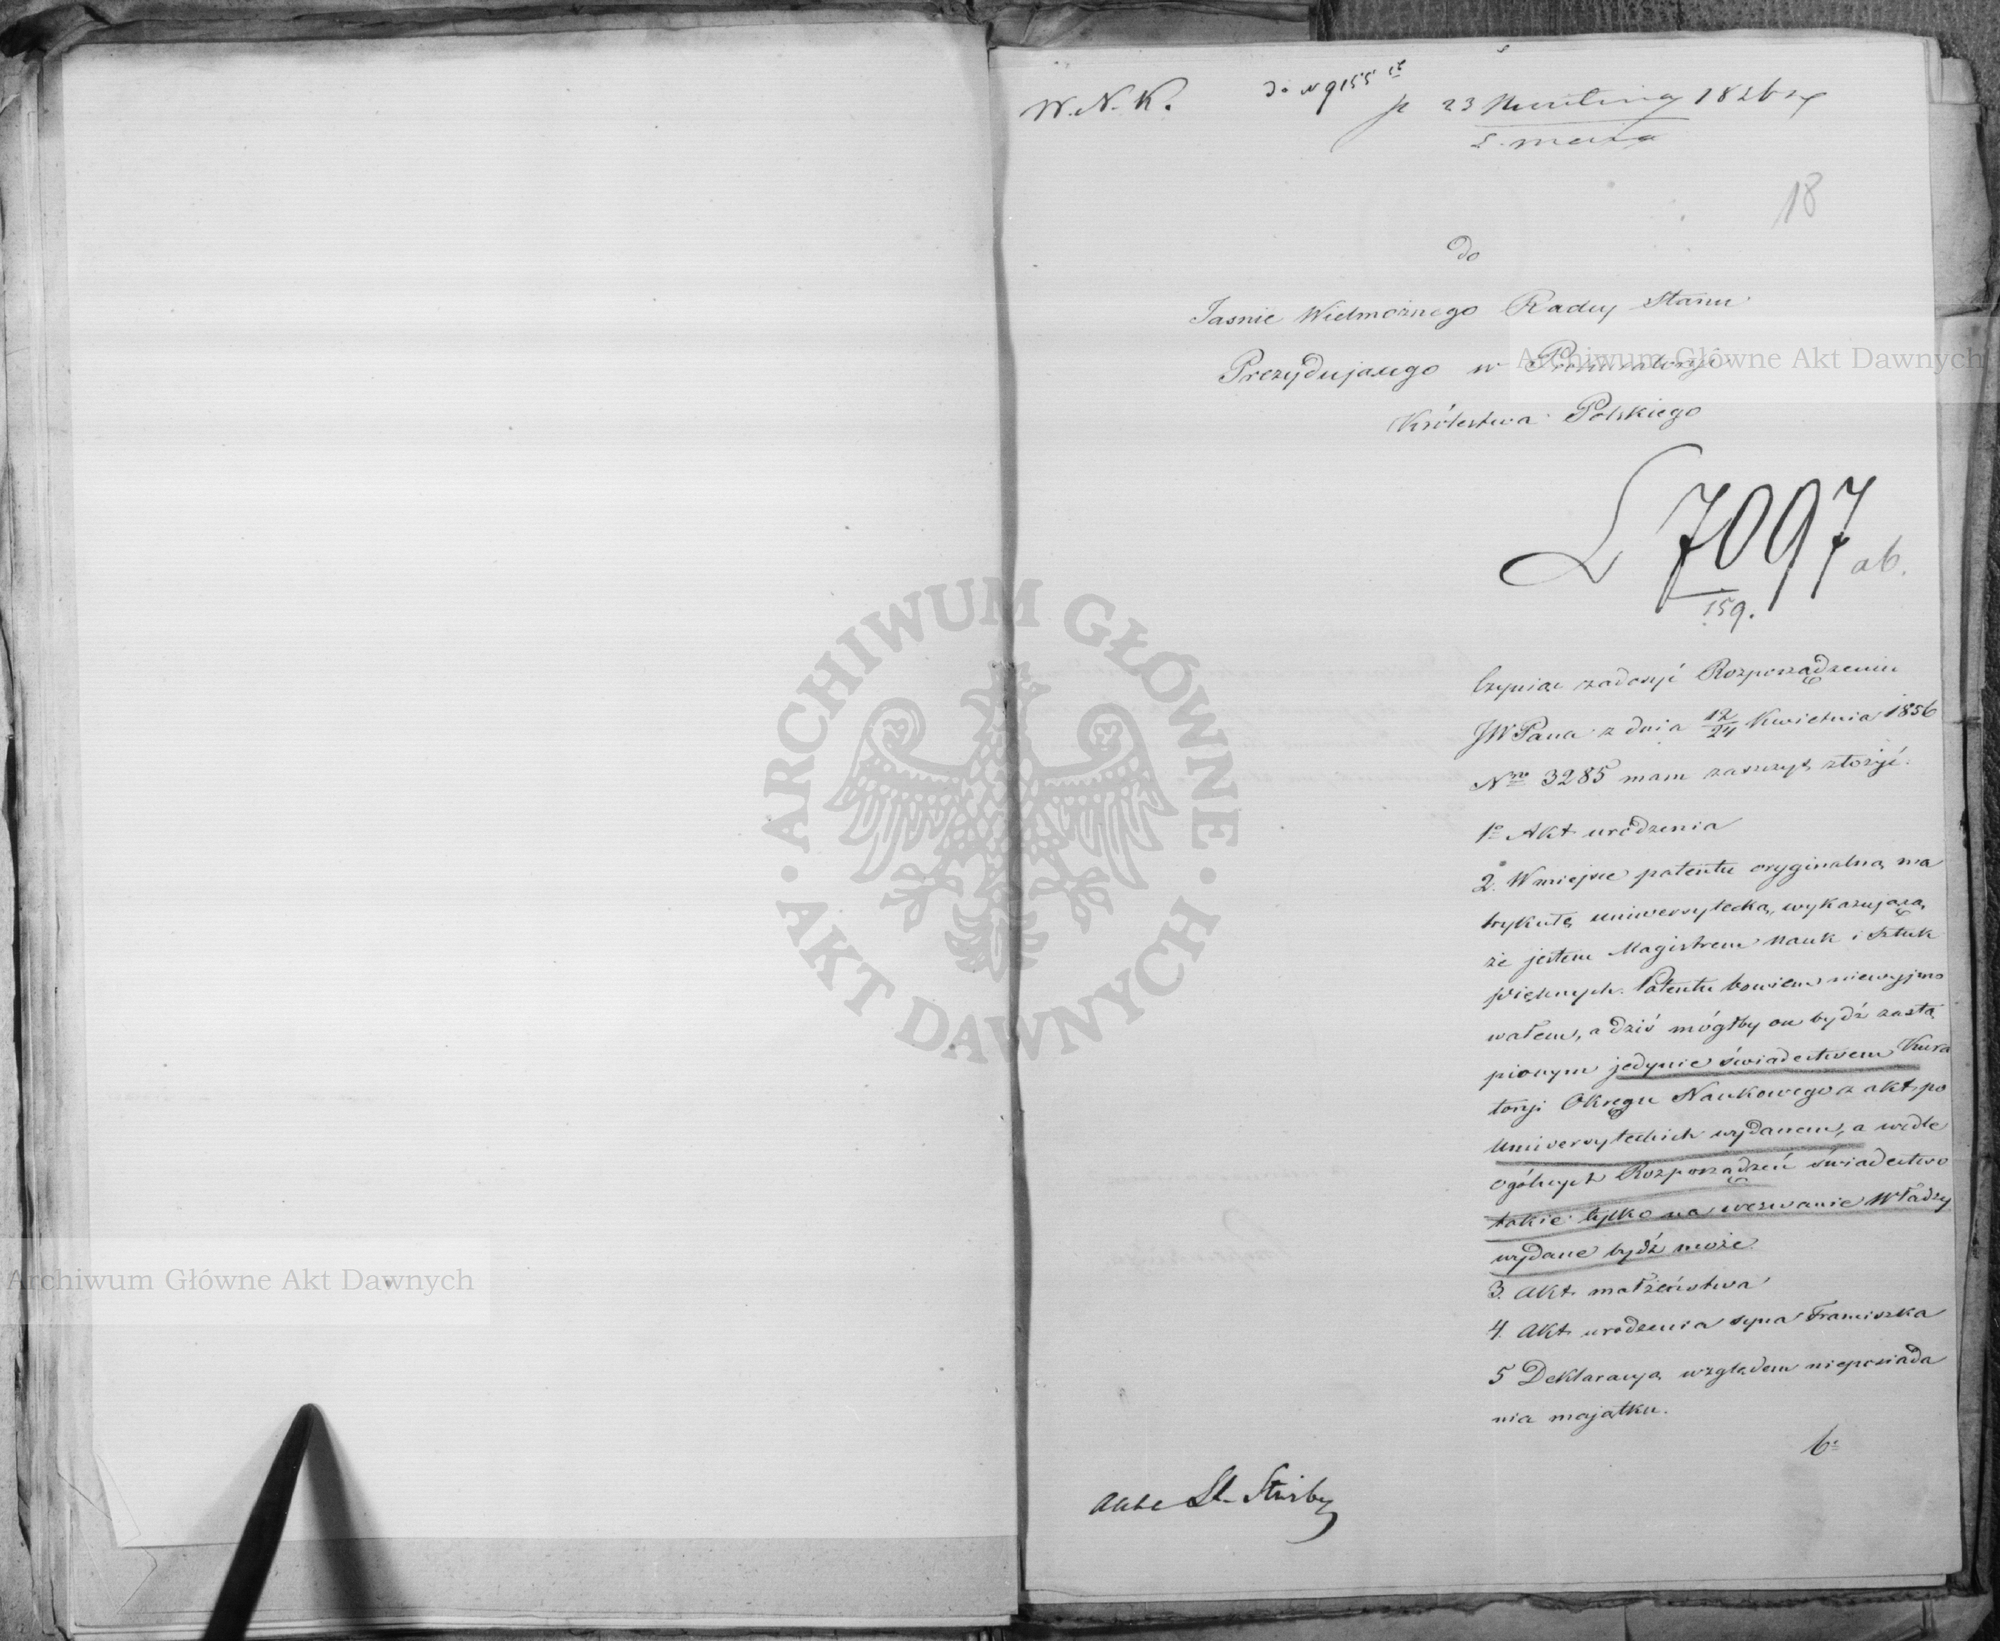 W. N. K. do N 9155
p 23 Kwietnia
5. maja
18
do
Jaśnie Wielmożnego Radcy Stanu
Prezydującego w Prokuratoryi
Królestwa Polskiego
L 7097 ab.
159.
Czyniąc zadosyć Rozporządzeniu
JW Pana z dnia 12/24 Kwietnia 1856
Nro 3285 mam zaszczyt złożyć.
1o Akt urodzenia
2. W miejsce patentu oryginalną ma
trykułę uniwersytecką, wykazującą
że jestem Magistrem Nauk i Sztuk
pięknych. Patentu bowiem niewyjmo
wałem, a dziś mógłby on bydź zastą
pionym jedynie świadectwem Kura
toryi Okręgu Naukowego z akt po
Uniwersyteckich wydanem, a wedle
ogólnych Rozporządzeń świadectwo
takie tylko na wezwanie Władzy
wydane bydź może.
3. Akt małżeństwa
4. Akt urodzenia syna Franciszka
5 Deklaracyą względem nieposiada
nia majątku.
6o
Akta Sł. Służby
ARCHIWUM GŁÓWNE
· AKT DAWNYCH ·
Archiwum Główne Akt Dawnych
Archiwum Główne Akt Dawnych